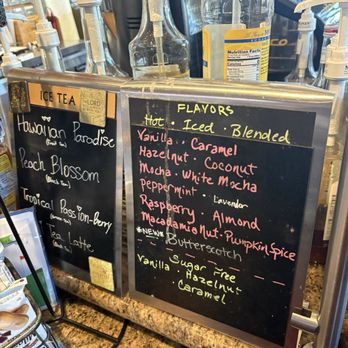 ICE TEA
Hawaiian Paradise
Peach Blossom
Tropical Passion-berry
Tea Latte
FLAVORS
Hot · Iced · Blended
Vanilla · Caramel
Hazelnut · Coconut
Mocha · White Mocha
Peppermint · Lavender
Raspberry · Almond
Macadamia Nut · Pumpkin Spice
*NEW* Butterscotch
Sugar Free
Vanilla · Hazelnut
Caramel
Nutrition Facts